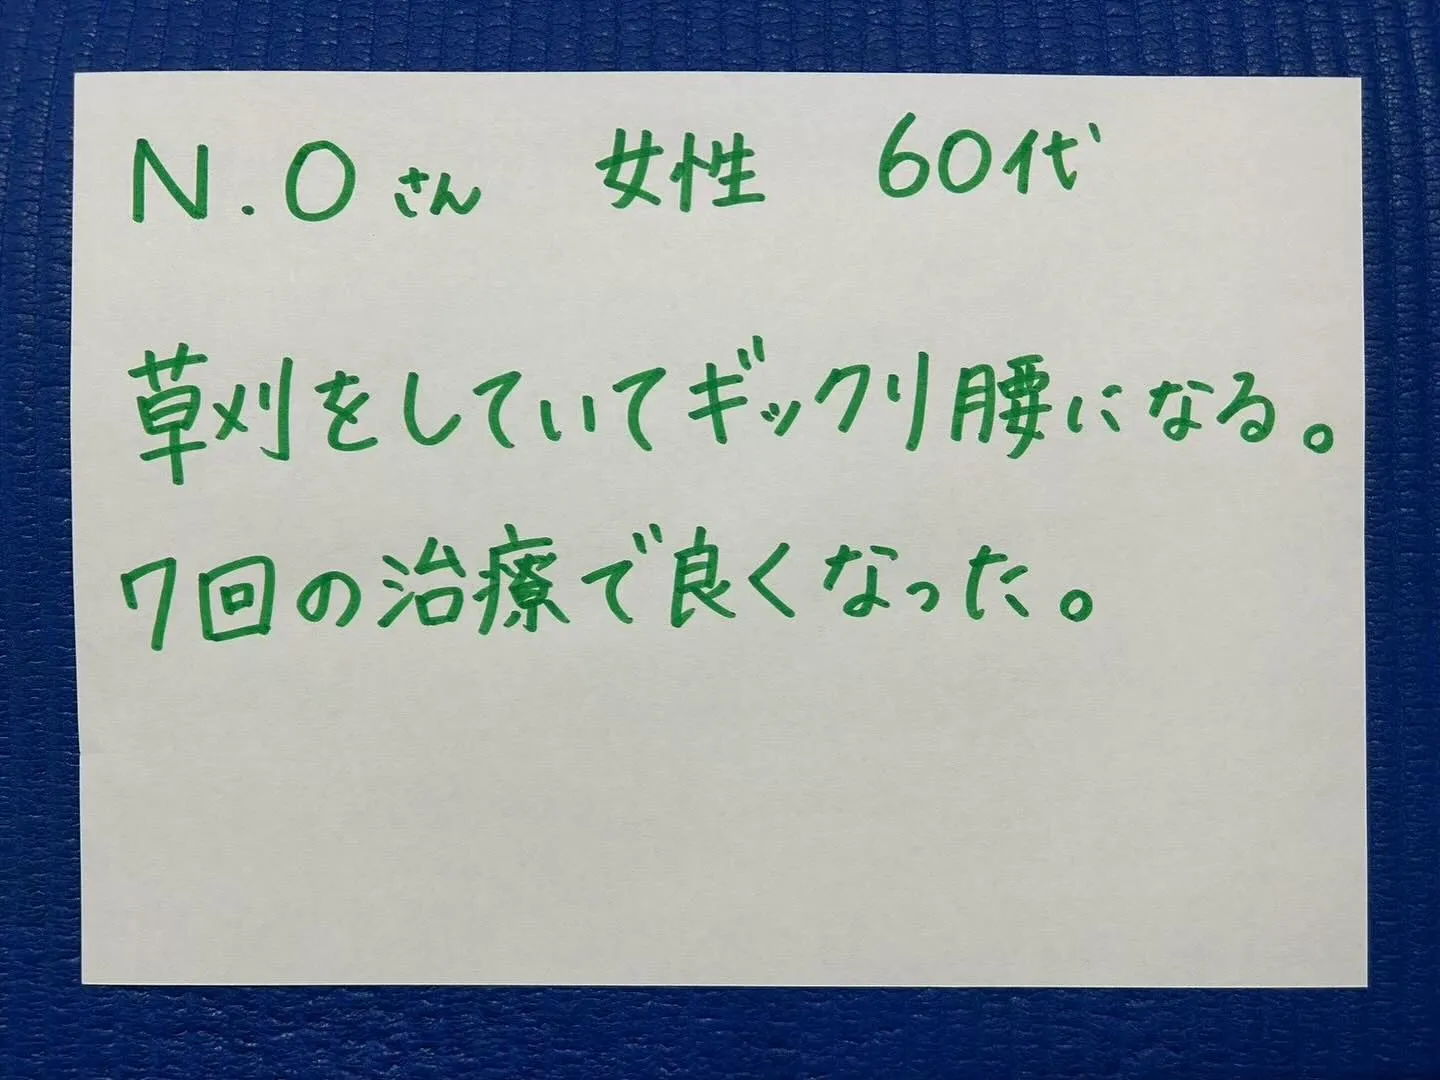 N.Oさん 女性 60代
草刈をしていてギックリ腰になる。
7回の治療で良くなった。